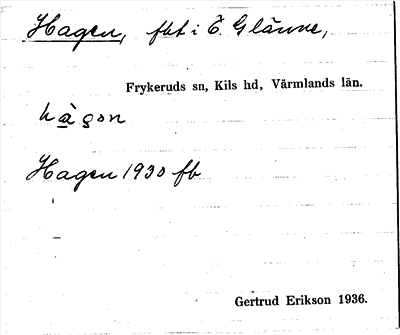 Hagen, fbt i Ö. Glänne,
Frykeruds sn, Kils hd, Värmlands län.
hà̱gon
Hagen 1930 fb
Gertrud Erikson 1936.